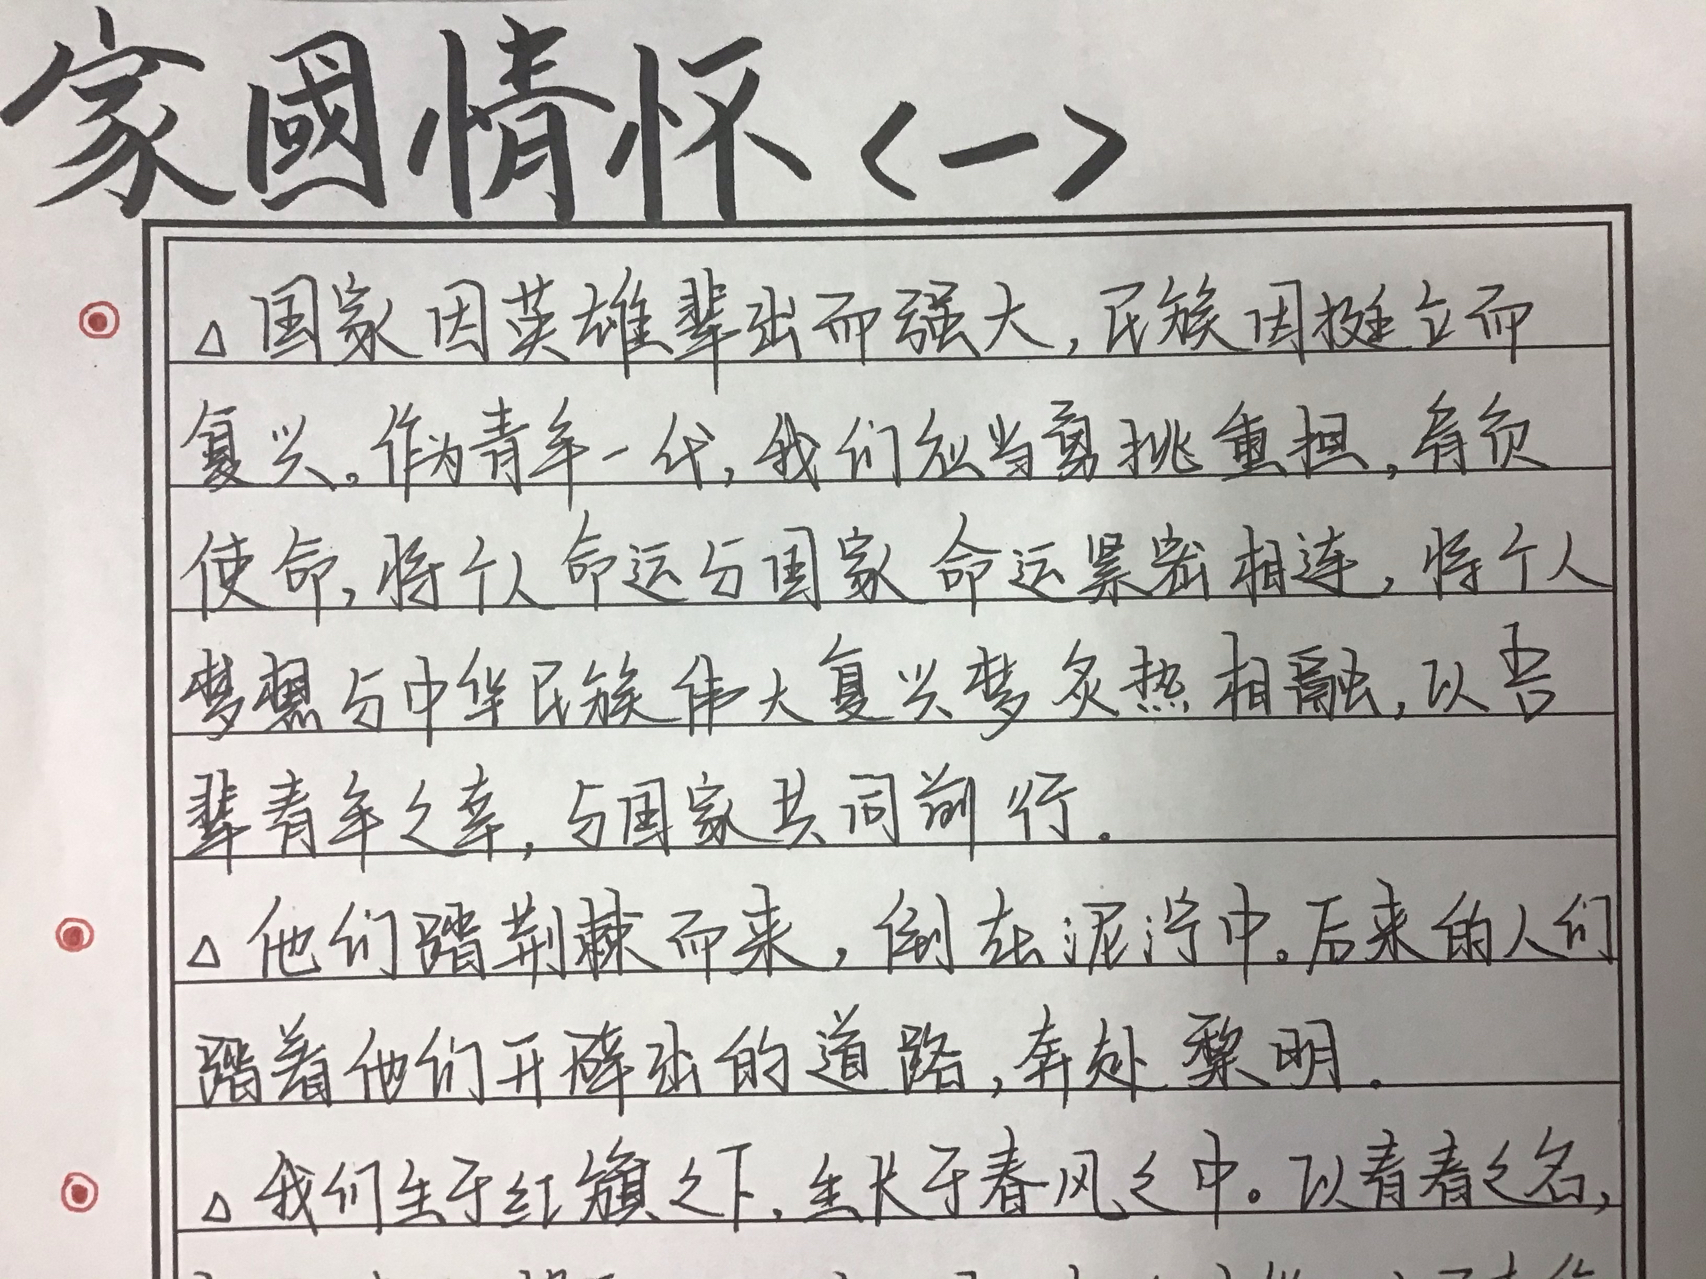 家國情怀<一>
△国家因英雄辈出而强大,民族因挺立而
复兴。作为青年一代,我们应当勇挑重担,肩负
使命,将个人命运与国家命运紧密相连,将个人
梦想与中华民族伟大复兴梦炙热相融,以吾
辈青年之幸,与国家共同前行。
△他们踏荆棘而来,倒在泥泞中。后来的人们
踏着他们开辟出的道路,奔赴黎明。
△我们生于红旗之下,生长于春风之中。以青春之名,